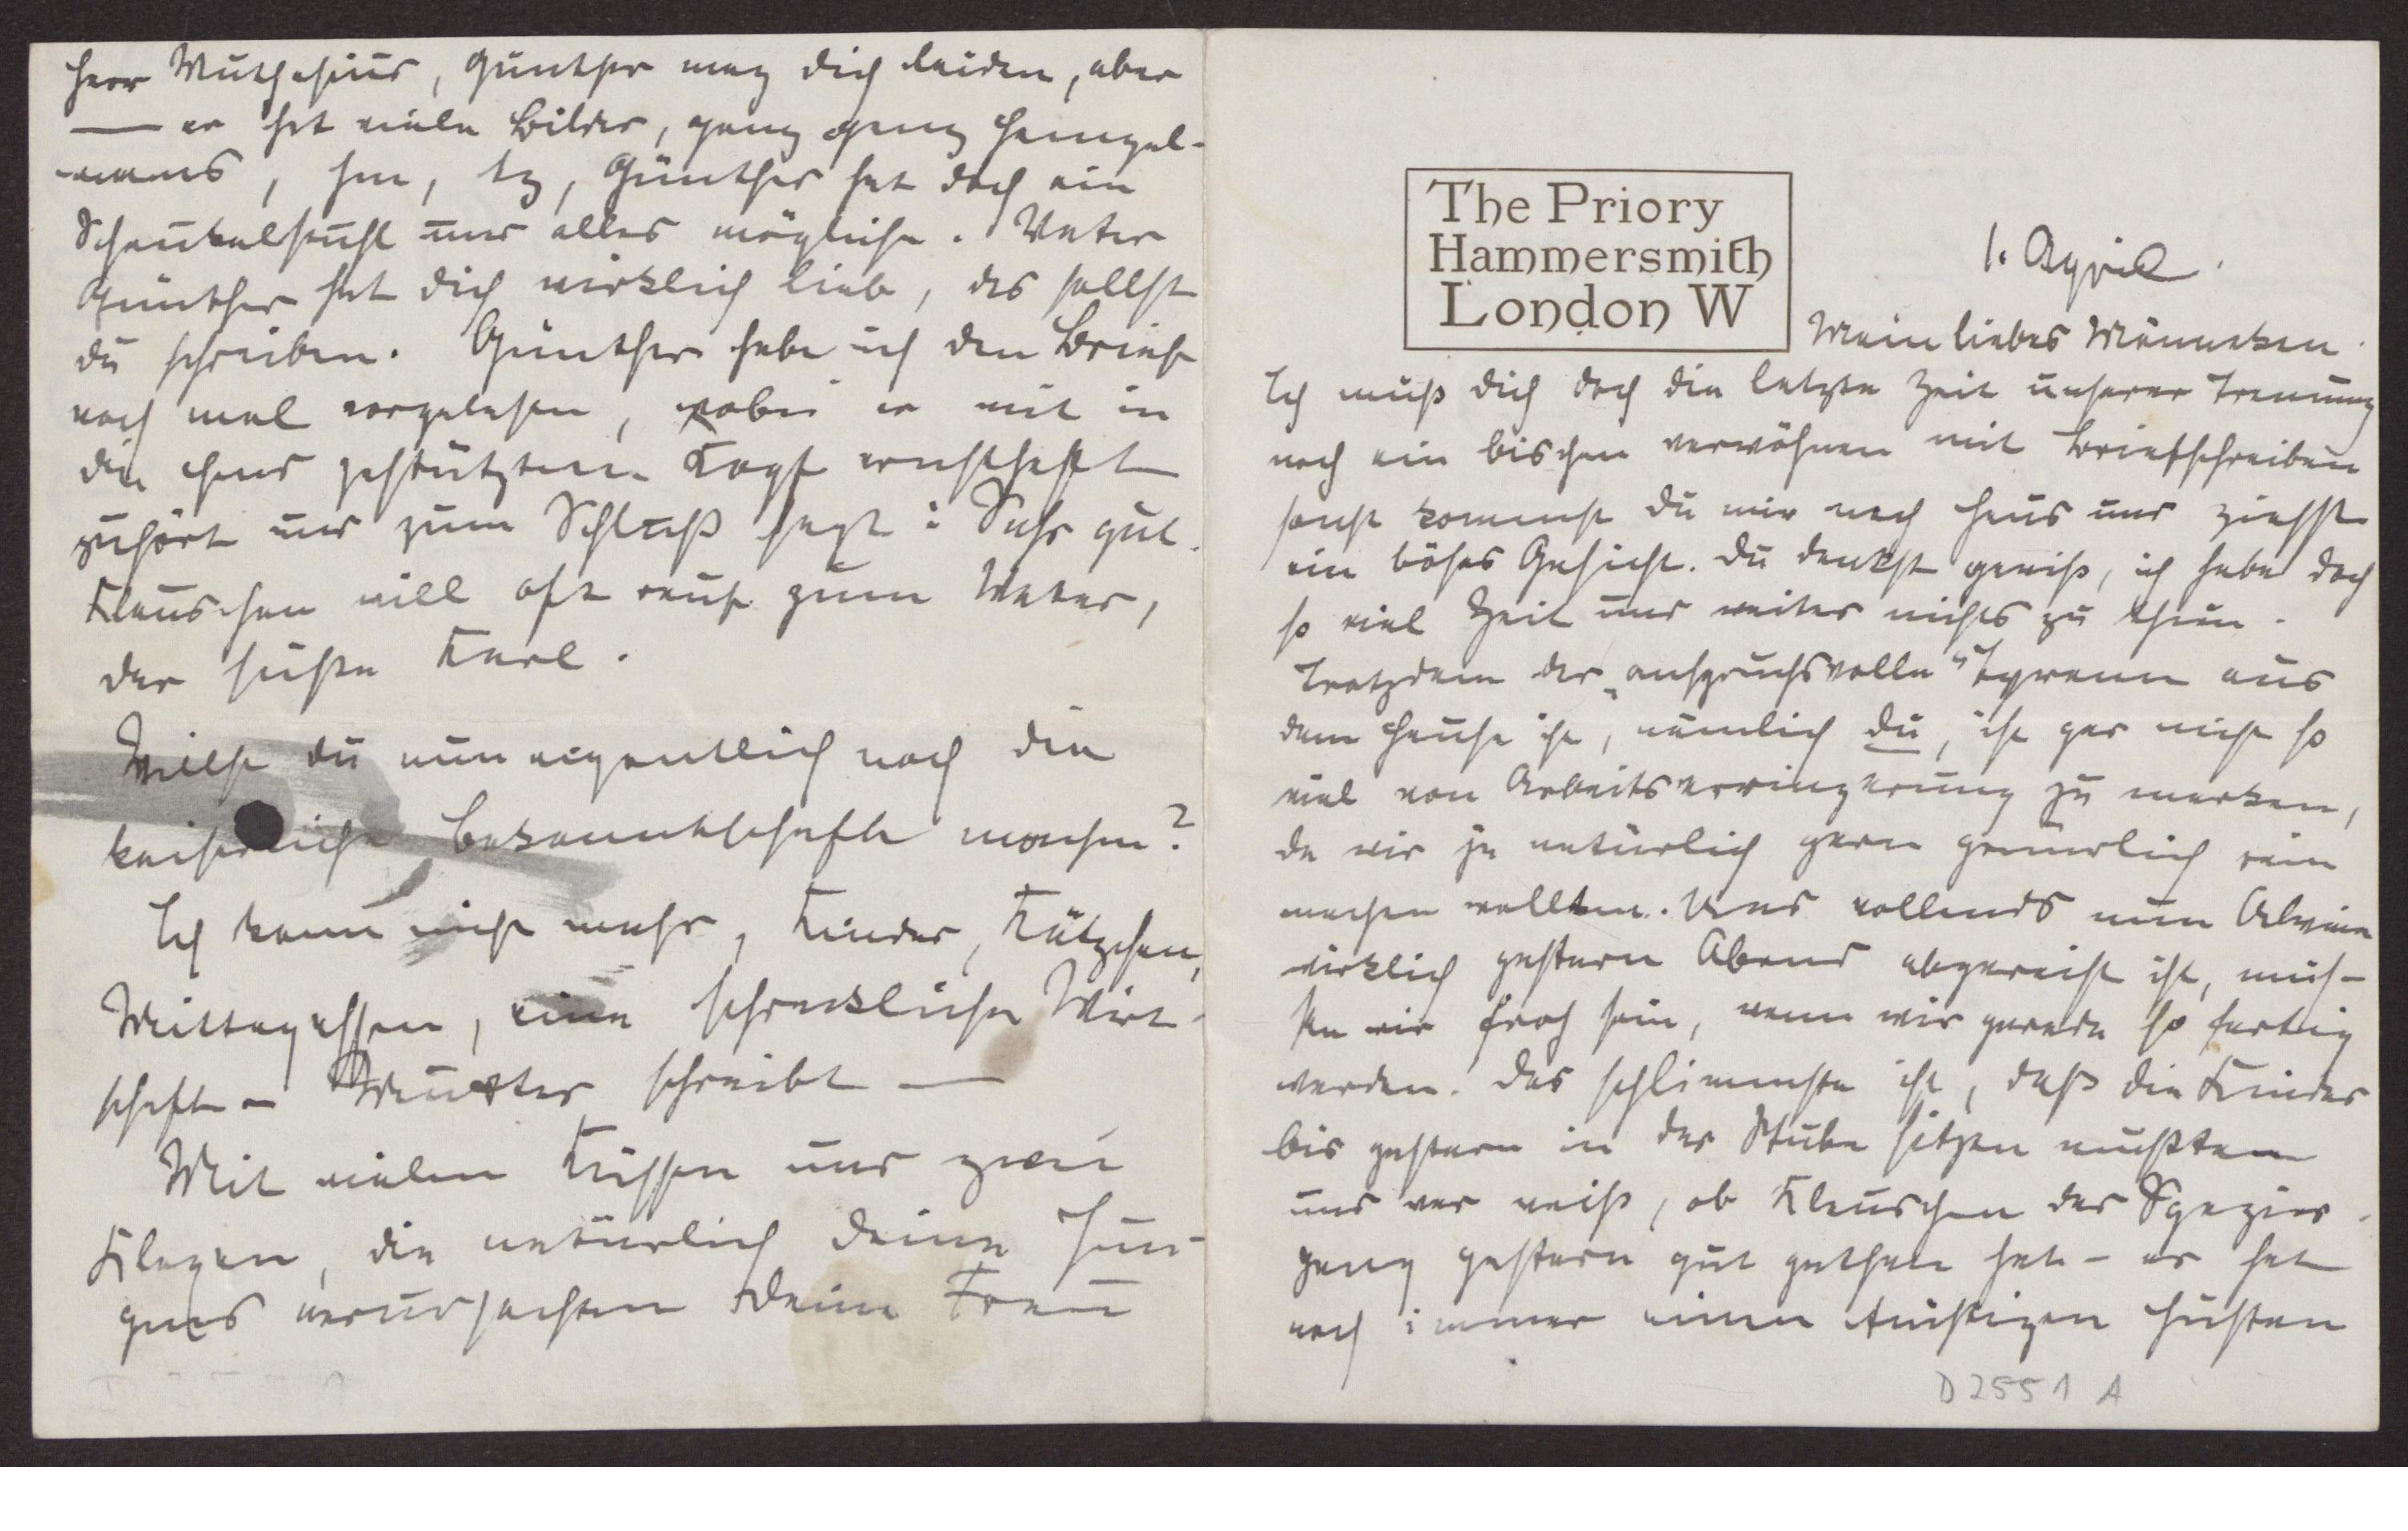 The Priory
Hammersmith
London W
1. April.
Mein liebes Männeken.
Ich muß dich doch die letzte Zeit unserer Trennung
noch ein bischen verwöhnen mit Briefschreiben
sonst kommst du mir nach Haus und ziehst
ein böses Gesicht. Du denkst gewiß, ich habe doch
so viel Zeit und weiter nichts zu thun.
Trotzdem der „anspruchsvolle“ Tyrann aus
dem Hause ist, nämlich du, ist gar nicht so
viel von Arbeitsverringerung zu merken,
da wir ja natürlich gern gründlich rein
machen wollten. Und vollends nun Alwine
wirklich gestern Abend abgereist ist, müs-
sen wir froh sein, wenn wir gerade so fertig
werden. Das schlimmste ist, daß die Kinder
bis gestern in der Stube sitzen mußten
und wer weiß, ob Klauschen der Spazier-
gang gestern gut gethan hat – er hat
noch immer einen tüchtigen Husten
D 2551 A
Herr Muthesius, Günther mag dich leiden, aber
— er hat viele Bilder, ganz ganz Hampel-
manns, hm, tz, Günther hat doch ein
Schaukelstuhl und alles mögliche. Vater
Günther hat dich wirklich lieb, das sollst
du schreiben. Günther habe ich den Brief
noch mal vorgelesen, wobei er mit in
die Hand gestütztem Kopf ernsthaft
zuhört und zum Schluß sagt: Sehr gut.
Klauschen will oft rauf zum Vater,
der süße Kerl.
Willst du nun eigentlich noch die
kaiserliche Bekanntschaft machen?
Ich kann nicht mehr, Kinder, Kätzchen,
Mittagessen, eine schreckliche Wirt-
schaft – Mutter schreibt —
Mit vielen Küssen und zwei
Klagen, die natürlich deine Jun-
gens verursachten Deine Frau